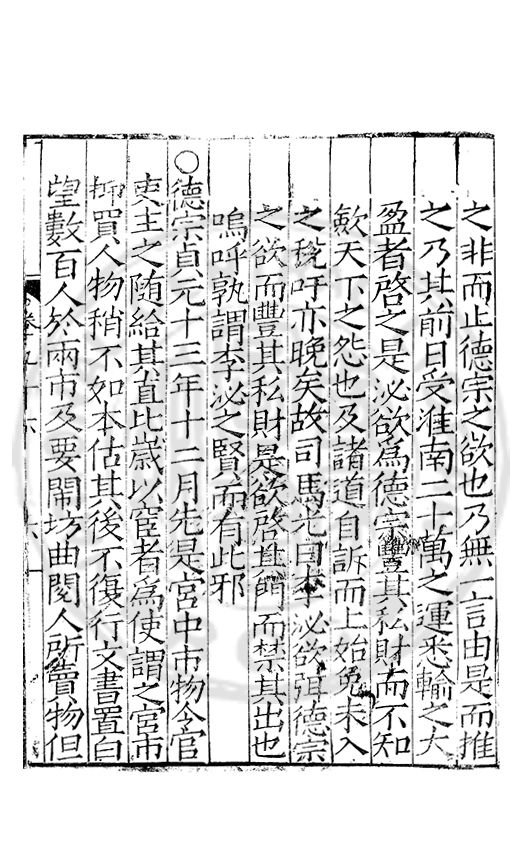 之非而止德宗之欲也乃無一言由是而推
之乃其前日受淮南二十萬之運悉輸之大
盈者啓之是泌欲為德宗豐其私財而不知
歛天下之怨也及諸道自訴而上始免未入
之稅吁亦晚矣故司馬光曰李泌欲弭德宗
之欲而豐其私財是欲啓其門而禁其出也
嗚呼孰謂李泌之賢而有此邪
○德宗貞元十三年十二月先是宮中市物令官
吏主之隨給其直比歲以宦者為使謂之宮市
抑買人物稍不如本估其後不復行文書置白
望數百人於兩市及要鬧坊曲閱人所賣物但
卷五十六
六